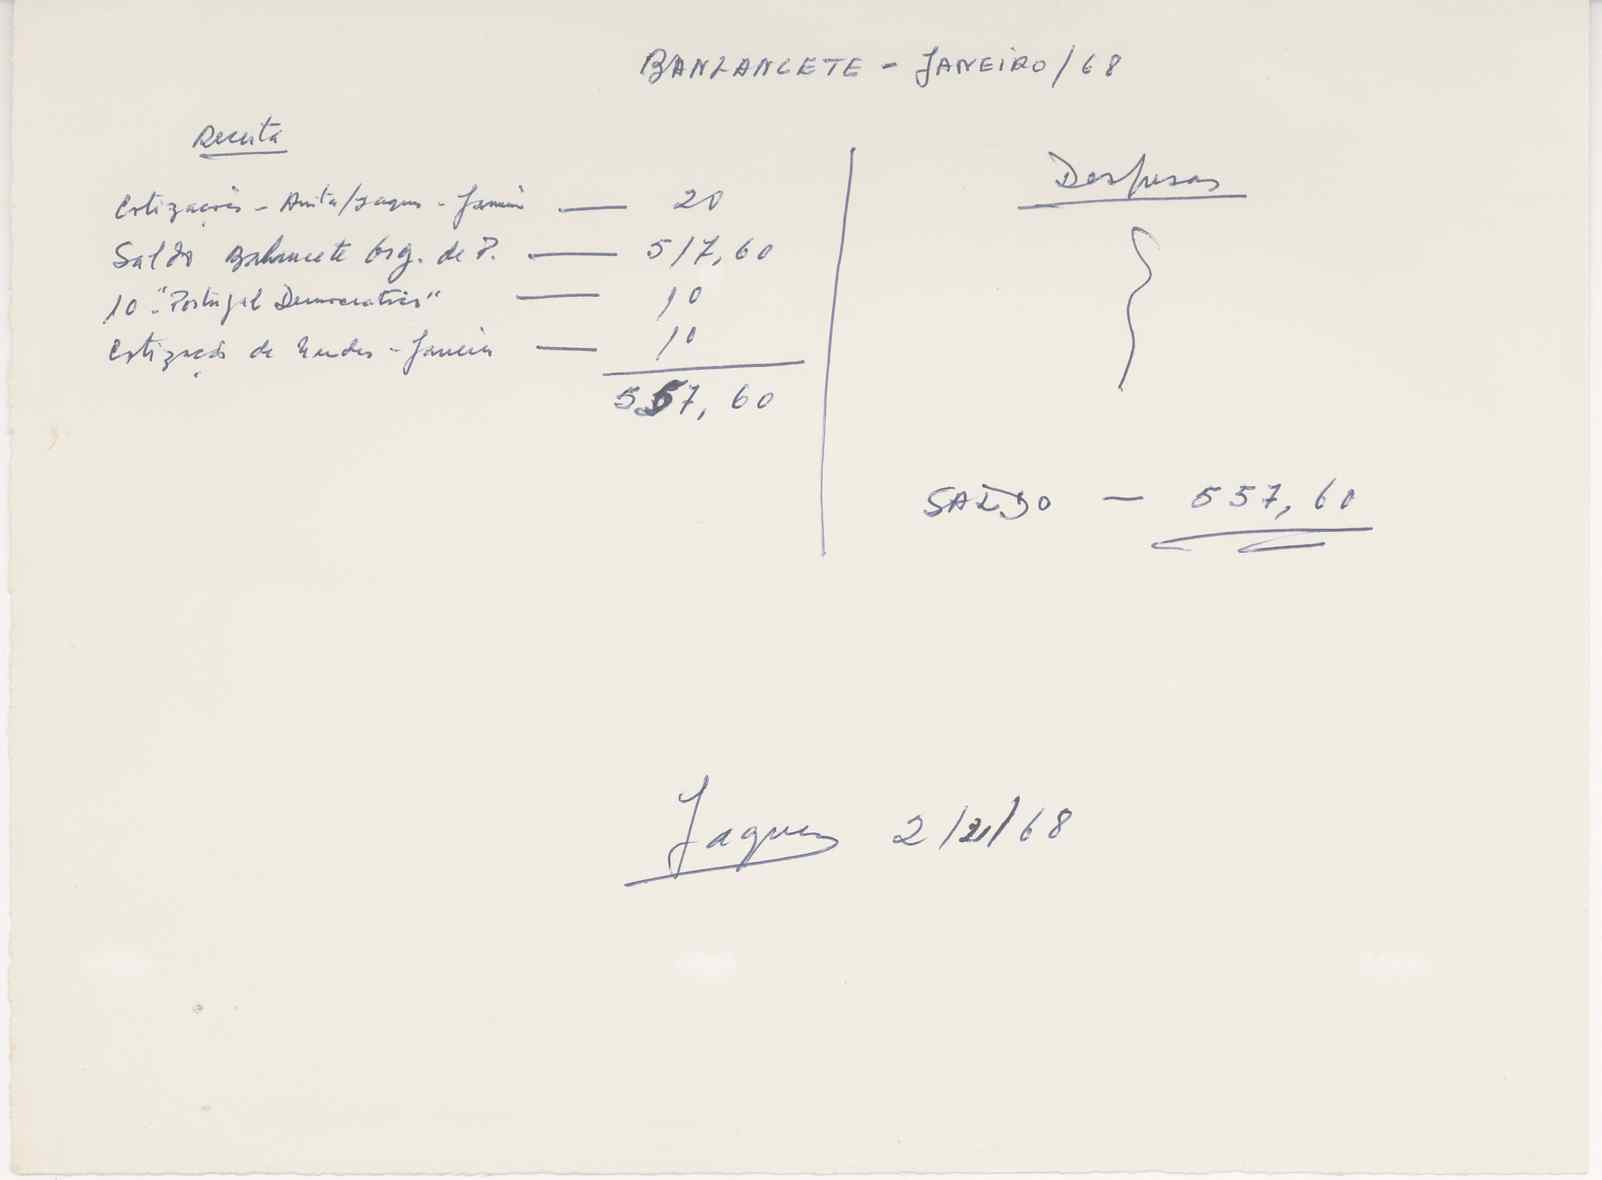 BANLANCETE - JANEIRO/68
Receita
Cotizações - Anita/Jaques - Janeiro — 20
Saldo Balancete Org. de P. — 517,60
10 - "Portugal Democratico" — 10
Cotização de Mendes - Janeiro — 10
557,60
Despesas
SALDO — 557,60
Jaques 2/2/68